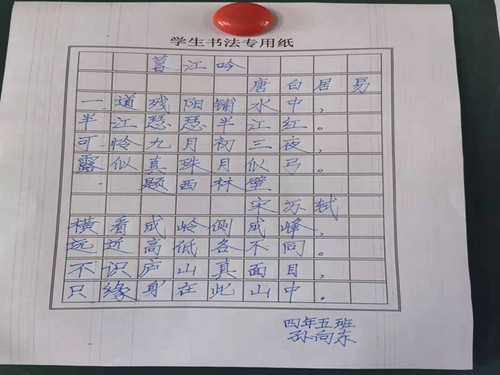 学生书法专用纸
暮江吟
唐白居易
一道残阳铺水中，
半江瑟瑟半江红。
可怜九月初三夜，
露似真珠月似弓。
题西林壁
宋苏轼
横看成岭侧成峰，
远近高低各不同。
不识庐山真面目，
只缘身在此山中。
四年五班
孙向东